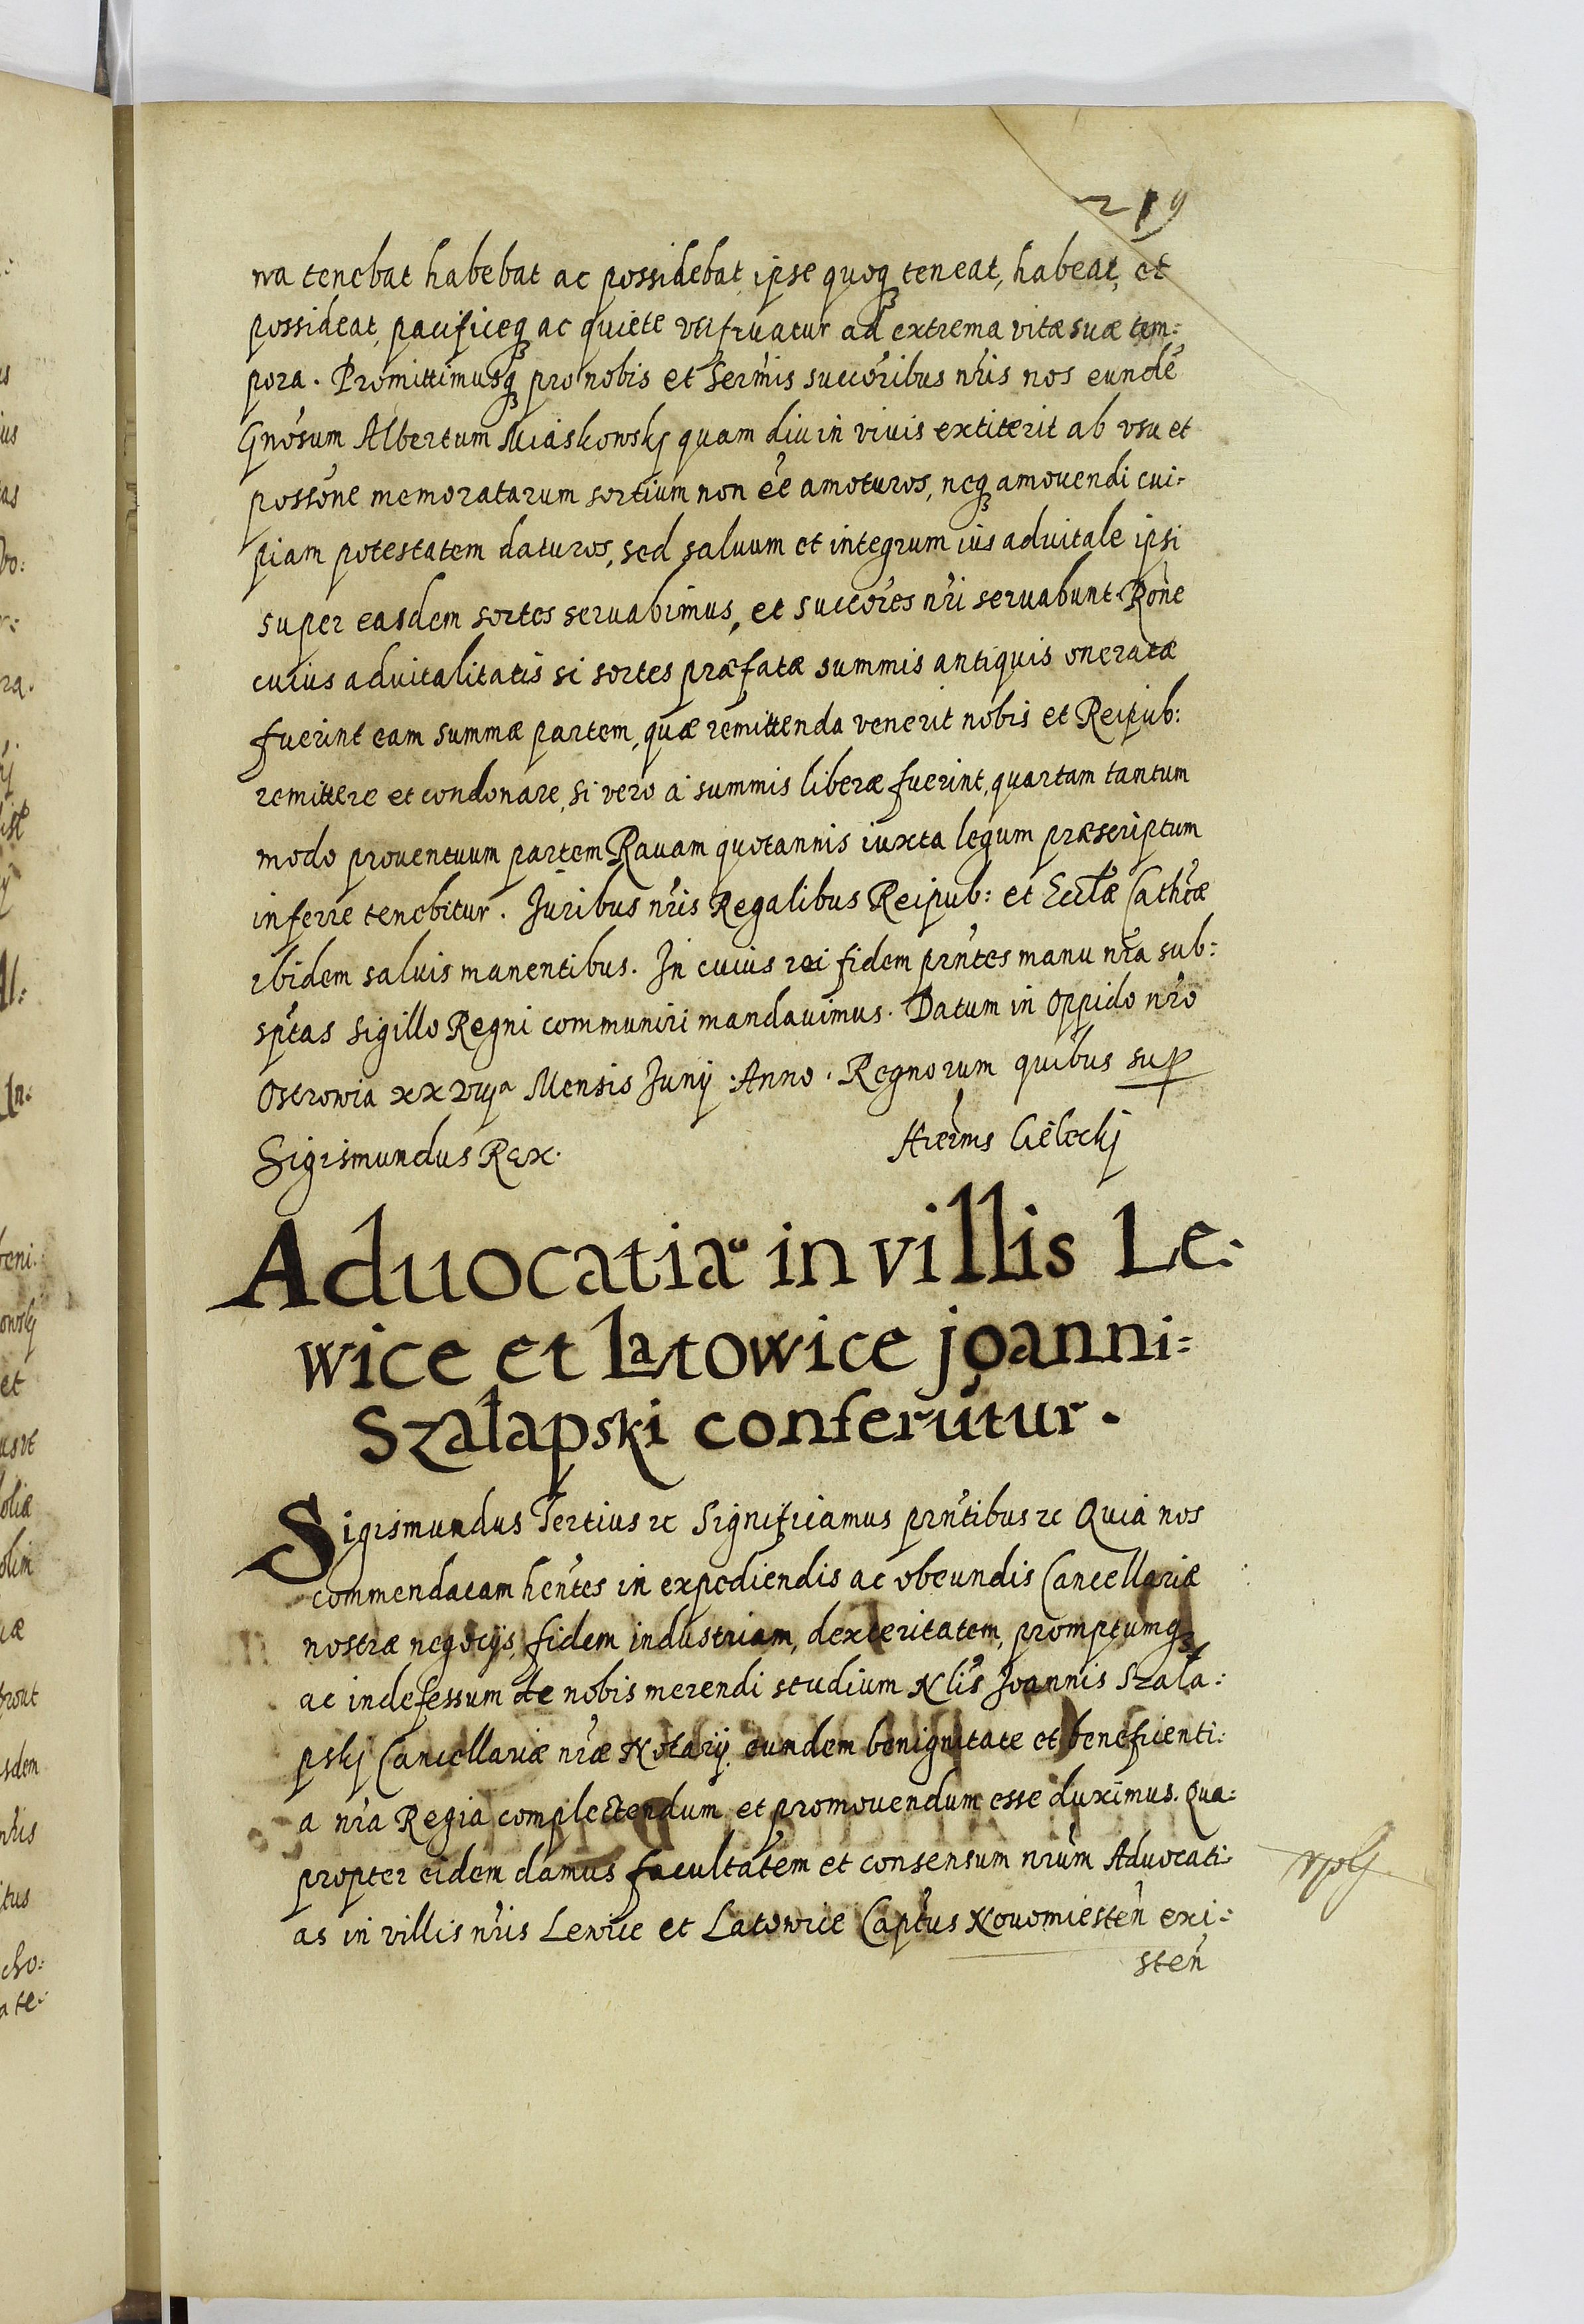 219
wa tenebat habebat ac possidebat, ipse quoq₃ teneat, habeat, et
possideat, pacificeq₃ ac quiete utifruatur ad extrema vitæ suæ tem:
pora. Promittimusq₃ pro nobis et Serm̃is succõribus nr̃is nos eundẽ
Gnõsum Albertum Miaskowskj quam diu in vivis extiterit ab vsu et
possõne memoratarum sortium non ẽe amoturos, neq₃ amouendi cui-
piam potestatem daturos, sed saluum et integrum ius aduitale ipsi
super easdem sortes seruabimus, et succores nr̃i seruabunt. Rõne
cuius aduitalitatis si sortes præfatæ summis antiquis oneratæ
fuerint eam summæ partem, quæ remittenda venerit nobis et Reipub:
remittere et condonare, si vero a summis liberæ fuerint, quartam tantum
modo prouentuum partem Rauam quotannis iuxta legum præscriptum
inferre tenebitur. Juribus nr̃is Regalibus Reipub: et Eccl̃æ Cathc̃æ
ibidem saluis manentibus. In cuius rei fidem prñtes manu nr̃a sub:
sp̃tas sigillo Regni communiri mandauimus. Datum in Oppido nr̃o
Ostrowia xx vijª Mensis Junij. Anno. Regnorum quibus sup
Sigismundus Rex. Hier̃ms Cieleckj
Aduocatia in villis Le-
wice et Latowice joanni=
Szałapski conferũtur.
Sigismundus Tertius ꝛc Significamus prñtibus ꝛc Quia nos
commendatam hẽntes in expediendis ac obeundis Cancellariæ
nostræ negocijs, fidem industriam, dexteritatem, promptumq₃
ac indefessum de nobis merendi studium Nlis̃ Joannis Szała:
pskj Cancellariæ nr̃æ Notarij, eundem benignitate et beneficenti:
a nr̃a Regia complectendum et promouendum esse duximus. Qua:
propter eidem damus facultatem et consensum nr̃um Aduocati-
as in villis nr̃is Lewice et Latowice Cap̃tus Nouomiestẽn exi-
stẽn